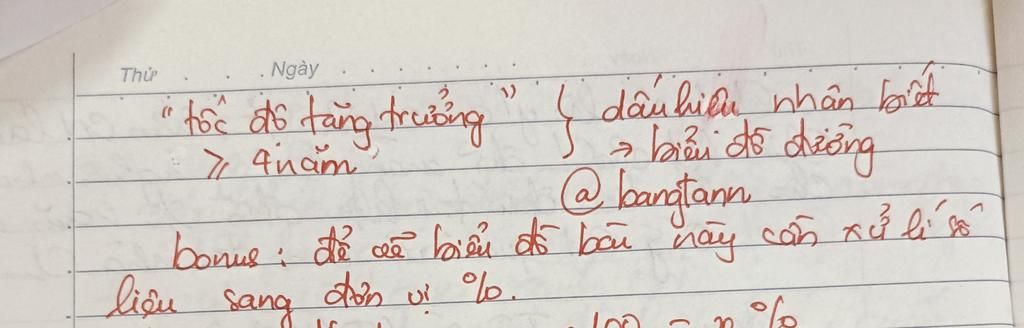 Thứ . . . . Ngày . . . . . . .
"tốc độ tăng trưởng" } dấu hiệu nhân biết
≥ 4 năm → biểu đồ đường
@bangtann
bonus: để vẽ biểu đồ bài này cần xử lí số
liệu sang đơn vị %.
100 = n %